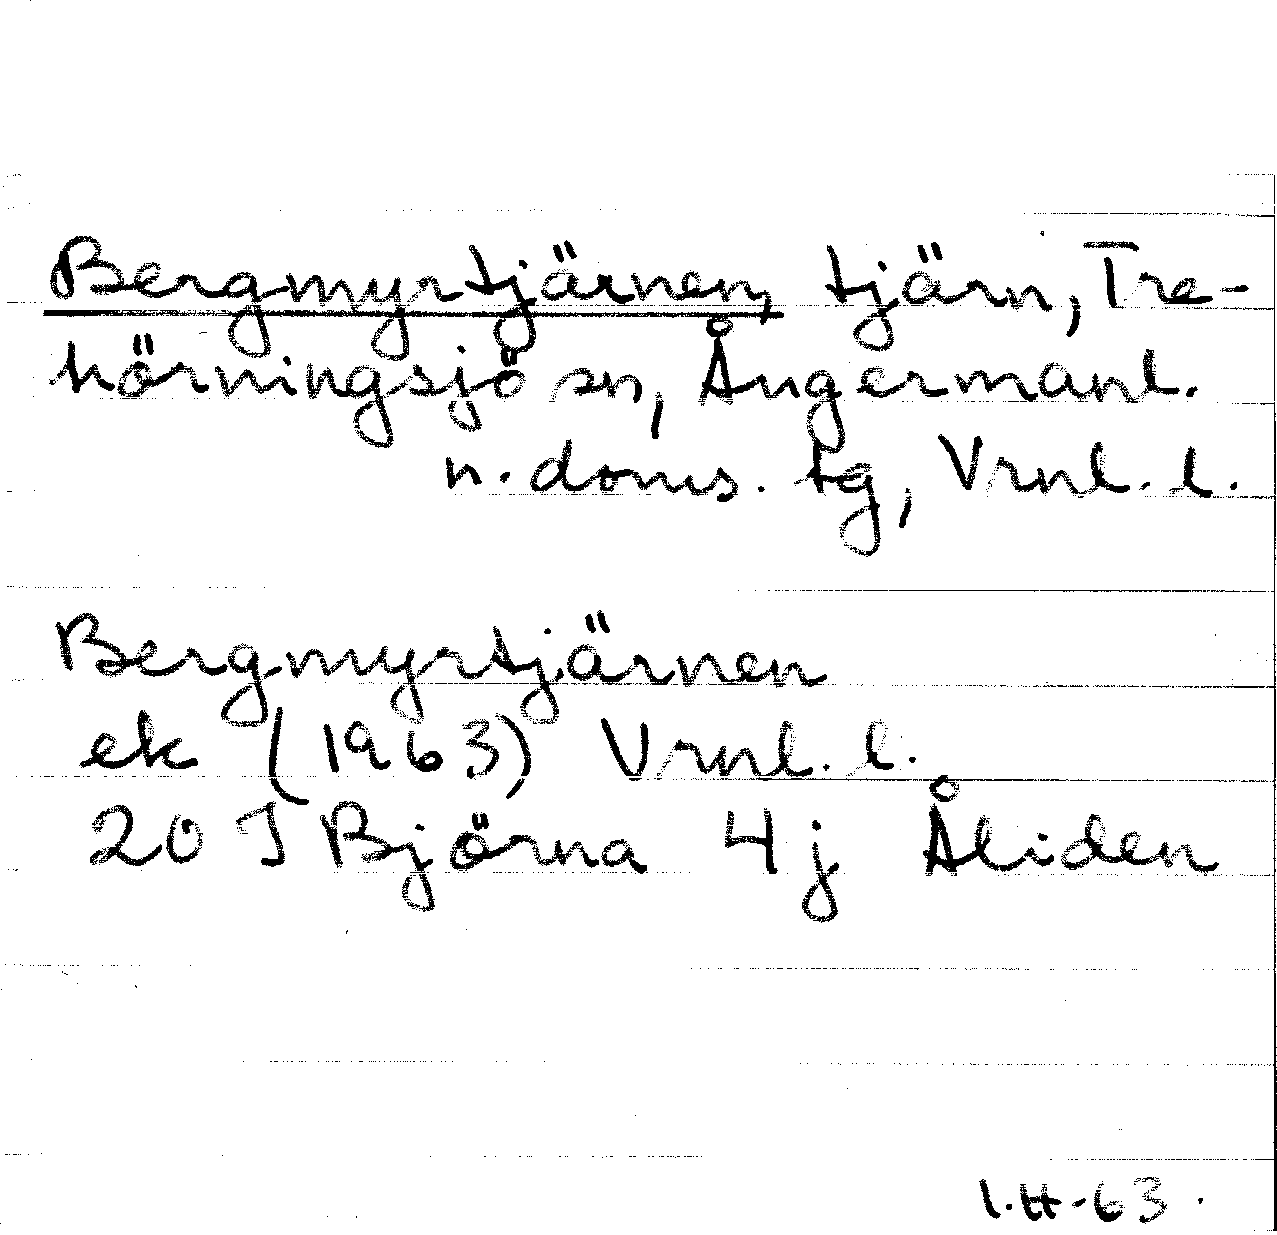 Bergmyrtjärnen, tjärn, Tre-
hörningsjö sn, Ångermanl.
n. doms. tg, Vrnl. l.
Bergmyrtjärnen
ek (1963) Vrnl. l.
20 J Björna 4j Åliden
I.H-63.